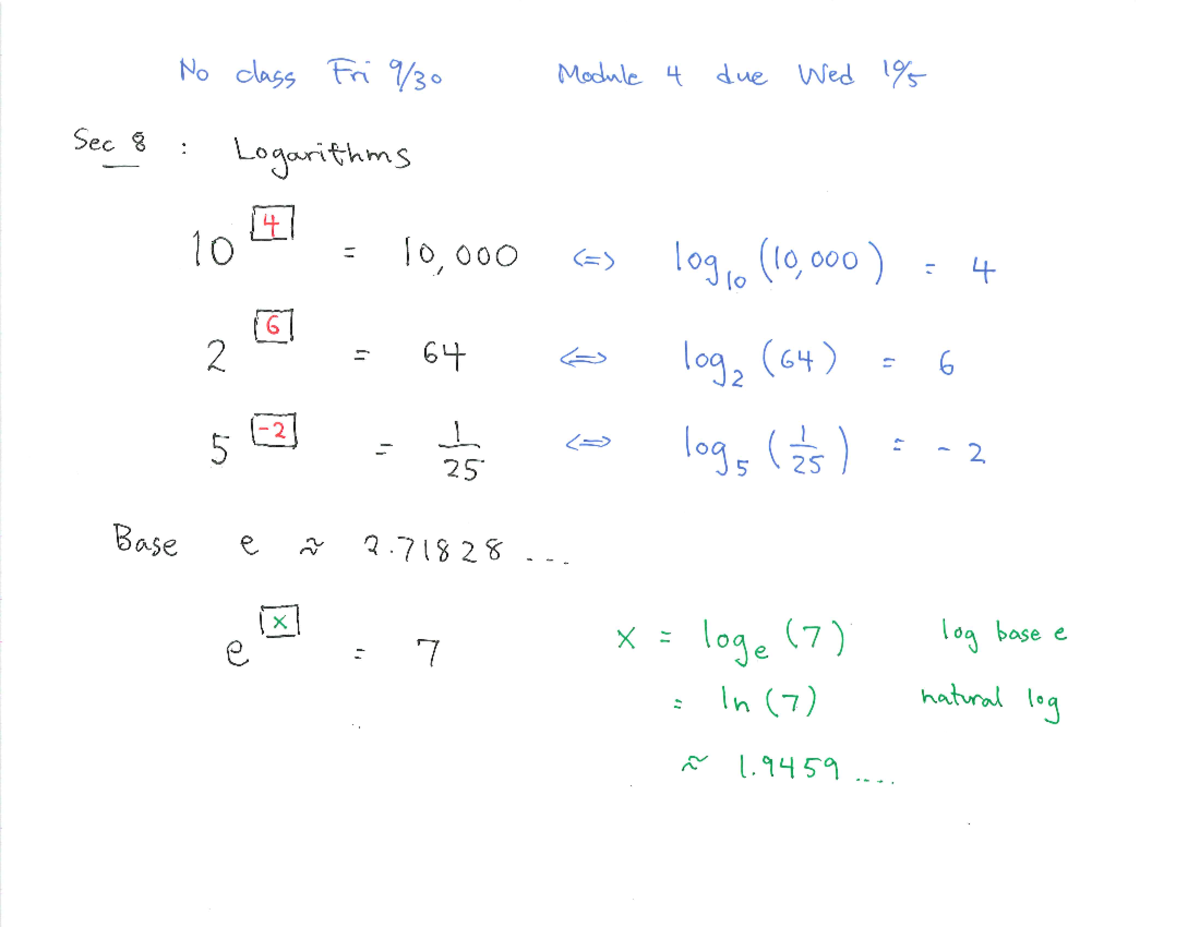 No class Fri 9/30 Module 4 due Wed 10/5
Sec 8 : Logarithms
10^4 = 10,000 <=> log₁₀ (10,000) = 4
2^6 = 64 <=> log₂ (64) = 6
5^-2 = 1/25 <=> log₅ (1/25) = -2
Base e ≈ 2.71828 ...
e^x = 7 x = logₑ (7) log base e
= ln (7) natural log
≈ 1.9459 ....